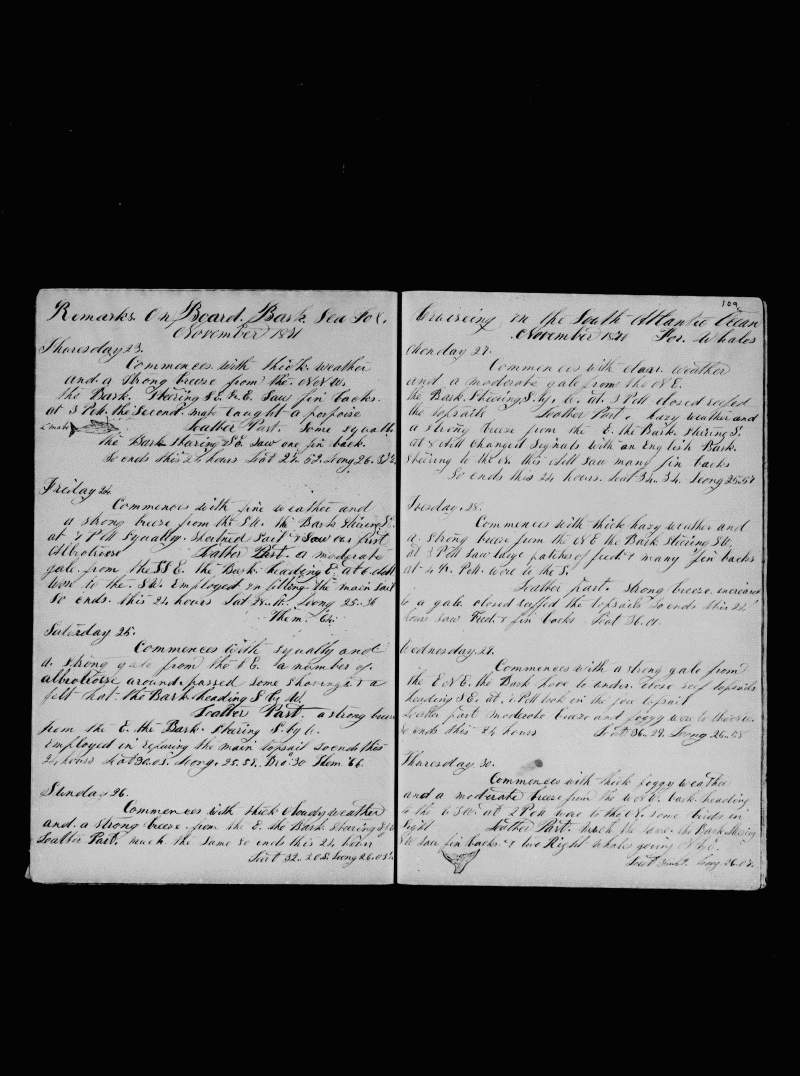 Remarks On Board Bark Sea Fox.
November 1871
Thuresday 23.
Commences with thick weather
and a strong breeze from the NNW.
the Bark Stearing SE. & E. Saw fin backs.
at 3 P.M. the Second mate caught a porpoise
2 mate Leatter Part. Some squalls
the Bark Stearing SE. saw one fin back.
So ends this 24 hours Lat 27.52. Long 26.
Friday 24
Commences with fine weather and
a strong breeze from the SW. the Bark steering
at P.M. squally. Shortned sail & saw our first
Albotrose Leatter Part. a moderate
gale from the SSE. the Bark heading E. at 6 AM
wore to the SW. Employed in fitting the main sail
So ends this 24 hours Lat 28. Long 25.36
Them. 64
Saturday 25.
Commences with squally and
a strong gale from the SE. a number of
albotrose around. passed some shavings & a
felt hat. the Bark heading S by W.
Leatter Part. a strong breeze
from the E. the Bark Stearing S. by W.
Employed in repairing the main topsail so ends this
24 hours Lat 30.05. Long. 25.52. Bro 30 Them. 66.
Sunday 26.
Commences with thick cloudy weather
and a strong breeze from the E. the Bark Stearing
Leatter Part. much the same so ends this 24 hours
Lat 32.20 S. Long 26.05
109
Cruiseing in the South Atlantic Ocean
November 1871 For Whales
Monday 27.
Commences with clear weather
and a moderate gale from the NE.
the Bark Steering S. by W. at 3 P.M. closed reefed
the topsails Leatter Part. hazy weather and
a strong breeze from the E. the Bark steering S.
at 8 AM changed signals with an English Bark
steering to the N. this AM saw many fin backs
So ends this 24 hours. Lat 34.34. Long 25.57
Tuesday. 28.
Commences with thick hazy weather and
a strong breeze from the NE the Bark steering SW.
at 3 P.M. saw large patches of feed & many fin backs
at 4 P.M. wore to the S.
Leatter part. strong breeze increased
to a gale closed reffed the topsails So ends this 24
hours saw Feed & fin backs Lat 36.01
Wednesday 29.
Commences with a strong gale from
the ENE. the Bark hove to under close reef topsails
heading SE. at P.M. took in the fore topsail
Leatter part moderate breeze and foggy wore to the
so ends this 24 hours Lat 36.29. Long 26.58
Thuresday 30.
Commences with thick foggy weather
and a moderate breeze from the bark heading
to the at 2 P.M. wore to the N. some birds in
sight Leatter Part. much the same. the Bark Steering
saw fin backs & two Right whales going
Lat Long. 26.07.